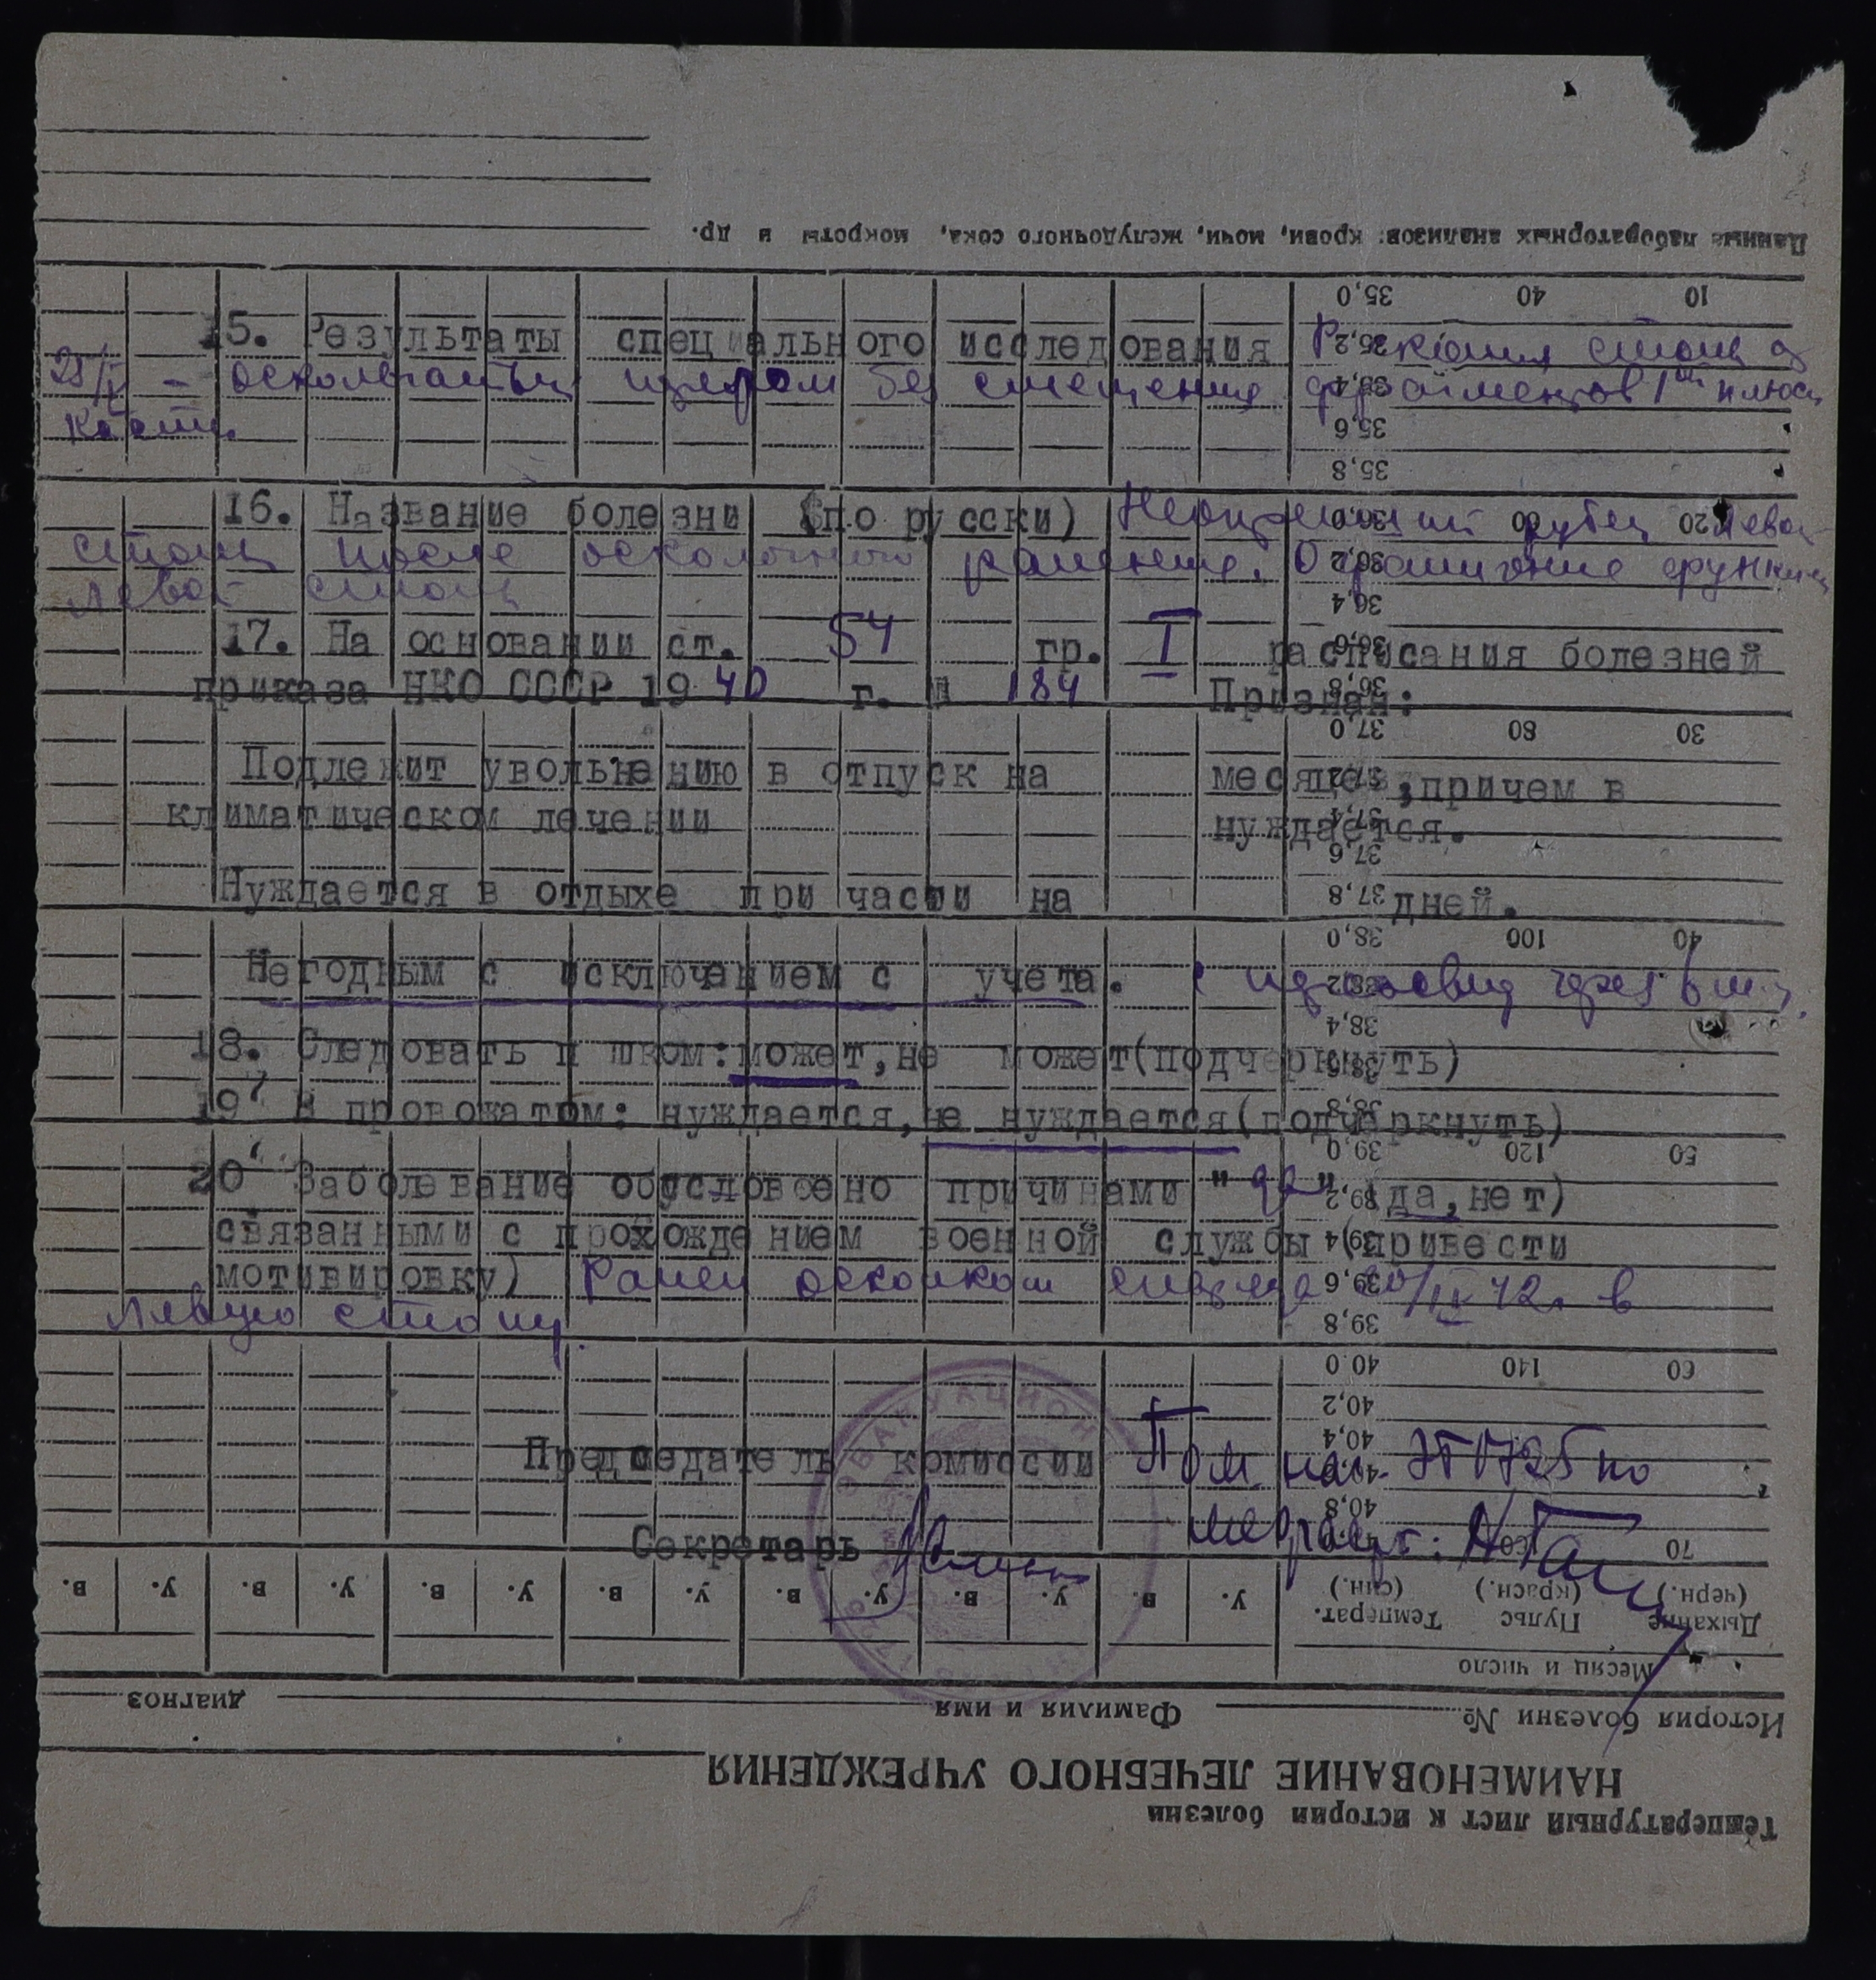 15. Результаты специального исследования Р-скопия стопы от
25/IX - оскольчатый перелом без смещения фрагментов 1ой плюсн
кости.
16. Название болезни (по русски) Неокрепший рубец левой
стопы после осколочного ранения. Ограничение функции
левой стопы
17. На основании ст. 54 гр. I расписания болезней
приказа НКО СССР 1940 г. N 184 Признан:
Подлежит увольнению в отпуск на месяцев, причем в
климатическом лечении нуждается.
Нуждается в отдыхе при части на дней.
Негодным с исключением с учета. с через 6 м-ц.
18. Следовать пешком: может, не может (подчеркнуть)
19. В провожатом: нуждается, не нуждается (подчеркнуть)
20. Заболевание обусловлено причинами "да" (да, нет)
связанными с прохождением военной службы (привести
мотивировку) Ранен осколком снаряда 20/IX 42г. в
левую стопу.
Председатель комиссии Пом. нач. ЭГ 1725 по
медчасти:
Секретарь
ЭВАКУАЦИОН
Температурный лист к истории болезни
НАИМЕНОВАНИЕ ЛЕЧЕБНОГО УЧРЕЖДЕНИЯ
История болезни № Фамилия и имя диагноз
Месяц и число
Дыхание (черн.) Пульс (красн.) Температ. (син.) У. В. У. В. У. В. У. В. У. В. У. В. У. В.
70
40,8
40,4
40,2
60 140 40.0
39,8
39,6
39,4
39,2
50 120 39,0
38,8
38,6
38,4
38,2
40 100 38,0
37,8
37,6
37,4
37,2
30 80 37,0
36,8
36,6
36,4
36,2
20 60 36,0
35,8
35,6
35,4
35,2
10 40 35,0
Данные лабораторных анализов: крови, мочи, желудочного сока, мокроты и др.